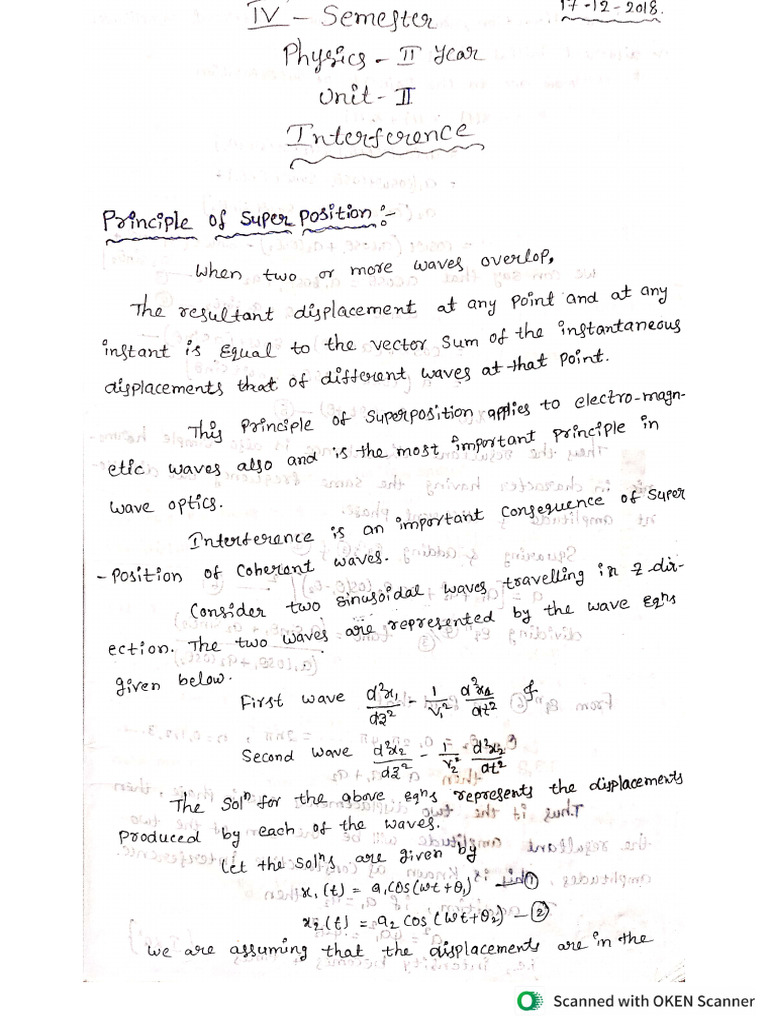 IV - Semester
17-12-2018.
Physics - II Year
Unit - II
Interference
Principle of Super Position :-
When two or more waves overlop,
The resultant displacement at any point and at any
instant is Equal to the vector sum of the instantaneous
displacements that of different waves at that point.
This Principle of superposition applies to electro-magn-
etic waves also and is the most important principle in
wave optics.
Interference is an important consequence of Super
- Position of coherent waves.
Consider two sinusoidal waves travelling in z dir-
ection. The two waves are represented by the wave Eqns
given below.
First wave d²x₁/dz² - 1/V₁² d²x₁/dt² &
Second wave d²x₂/dz² - 1/V₂² d²x₂/dt²
The Solⁿ for the above eqⁿs represents the displacements
produced by each of the waves.
Let the Solⁿs are given by
x₁(t) = a₁cos(wt+θ₁) — ①
x₂(t) = a₂ cos (wt+θ₂) — ②
we are assuming that the displacements are in the
Scanned with OKEN Scanner